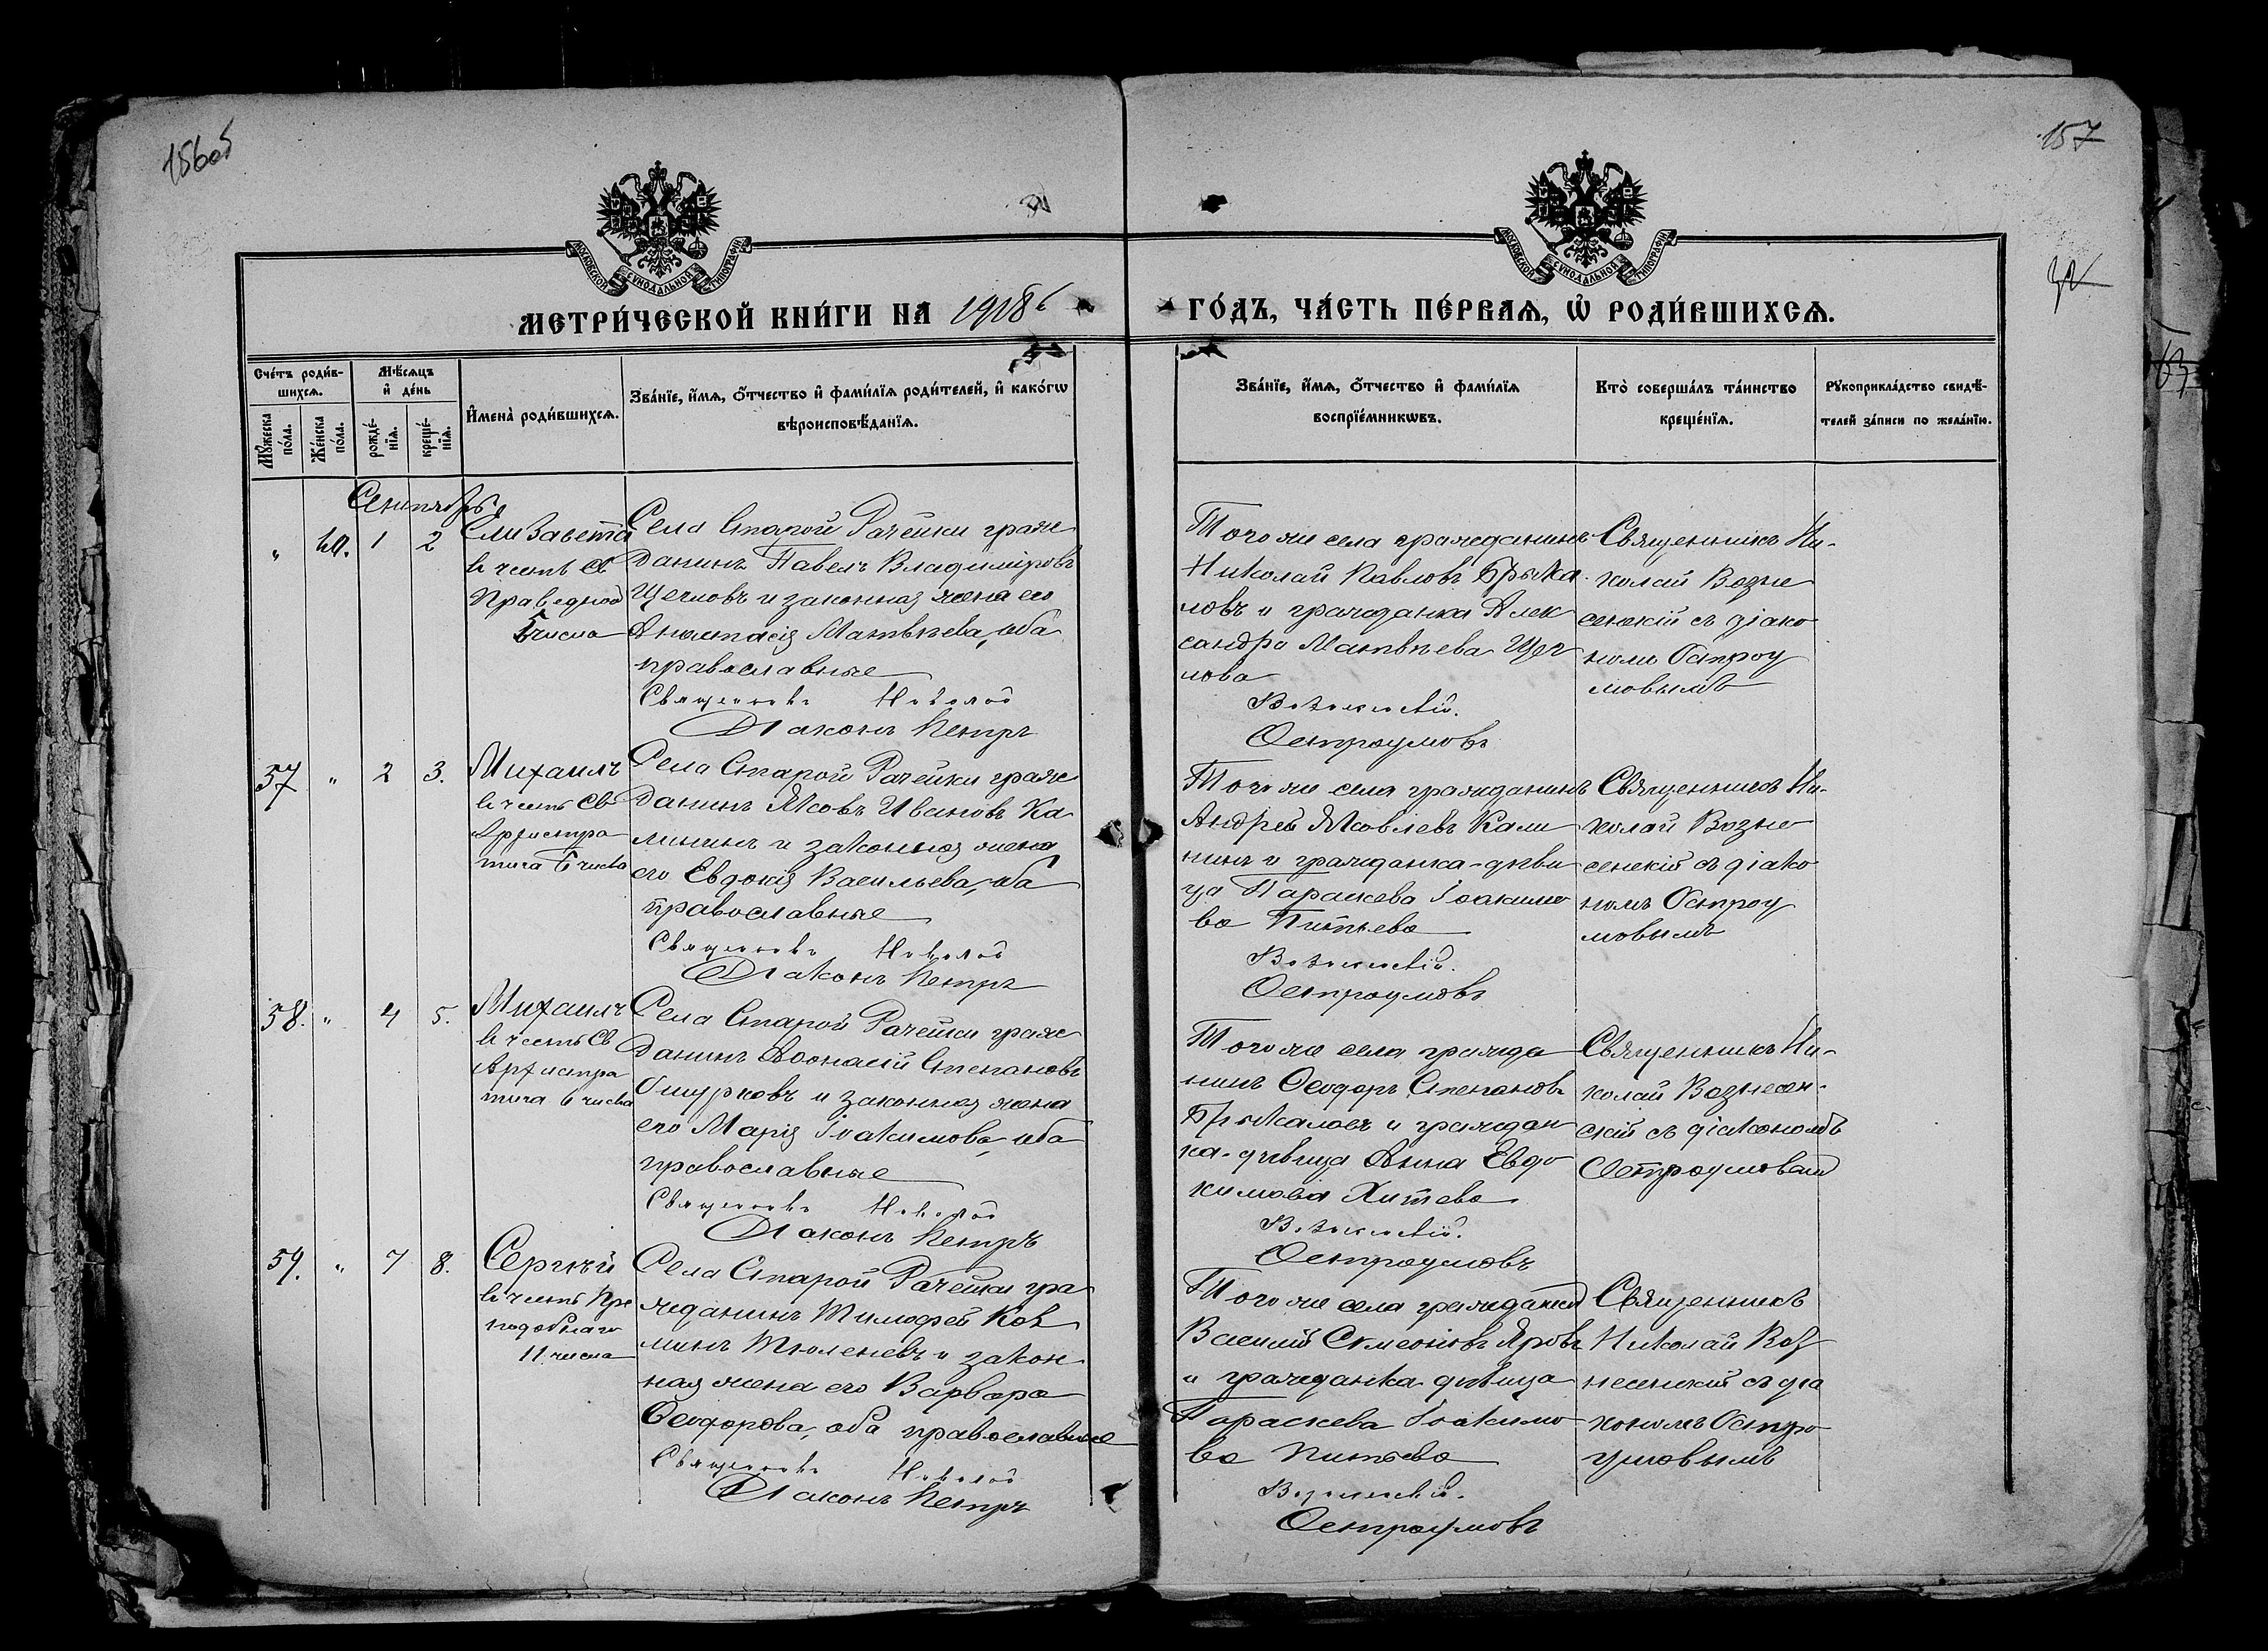 156об
157
МОСКОВСКОЙ СУНОДАЛЬНОЙ ТИПОГРАФІИ
МОСКОВСКОЙ СУНОДАЛЬНОЙ ТИПОГРАФІИ
МЕТРИ́ЧЕСКОЙ КНИ́ГИ НА 1918й
ГО́ДЪ, ЧА́СТЬ ПЕ́РВАѦ, Ѡ҆ РОДИ́ВШИХСѦ.
Сче́тъ роди́в-
шихсѧ.
Мѣ́сѧцъ
и҆ де́нь
Мꙋ́жеска
по́ла.
Же́нска
по́ла.
рожде́-
нїѧ.
креще́-
нїѧ.
И҆мена̀ роди́вшихсѧ.
Зва́нїе, и҆́мѧ, ѻ҆́тчество и҆ фами́лїѧ роди́телей, и҆ како́гѡ
вѣроисповѣ́данїѧ.
Зва́нїе, и҆́мѧ, ѻ҆́тчество и҆ фами́лїѧ
воспрїе́мникѡвъ.
Кто̀ соверша́лъ та́инство
креще́нїѧ.
Рꙋкоприкла́дство свидѣ́-
телей за́писи по жела́нїю.
Сентябрь
" 40. 1 2
Елизавета
въ честь св
Праведной
5 числа
Села Старой Рачейки граж
данинъ Павелъ Владиміровъ
Щегловъ и законная жена его
Анастасія Матвѣева, оба
православные
Священникъ Николай
Діаконъ Петръ
Того же села гражданинъ
Николай Павловъ Брыка
ловъ и гражданка Алек
сандра Матвѣева Щег
лова
Вознесенскій.
Остроумовъ
Священникъ Ни-
колай Возне
сенскій съ діако
номъ Остроу
мовымъ
57 " 2 3.
Михаилъ
въ честь св
Архистра
тига 6 числа
Села Старой Рачейки граж
данинъ Яковъ Ивановъ Ка
лининъ и законная жена
его Евдокія Васильева, оба
православные
Священникъ Николай
Діаконъ Петръ
Того же села гражданинъ
Андрей Яковлевъ Кали
нинъ и гражданка-дѣви
ца Параскева Іоакимо
ва Питьева
Вознесенскій.
Остроумовъ
Священникъ Ни-
колай Возне
сенскій съ діако
номъ Остроу
мовымъ
58. " 4 5.
Михаилъ
въ честь Св
Архистра
тига 6 числа
Села Старой Рачейки граж
данинъ Аѳонасій Степановъ
Ошурковъ и законная жена
его Марія Іоакимова, оба
православные
Священникъ Николай
Діаконъ Петръ
Того же села гражда
нинъ Ѳеодоръ Степановъ
Брыкаловъ и граждан
ка-дѣвица Анна Евдо
кимова Хитева
Вознесенскій.
Остроумовъ
Священникъ Ни-
колай Вознесен-
скій съ діакономъ
Остроумовым
59. " 7 8.
Сергѣй
въ честь Пре
подобнаго
11 числа
Села Старой Рачейки гра
жданинъ Тимофей Коз
минъ Тюленевъ и закон
ная жена его Варвара
Ѳеодорова, оба православные
Священникъ Николай
Діаконъ Петръ
Того же села гражданин
Василій Симеоновъ Яровъ
и гражданка дѣвица
Параскева Іоакимо
ва Питьева
Вознесенскій.
Остроумовъ
Священникъ
Николай Воз
несенскій съ діа
кономъ Остро
умовымъ